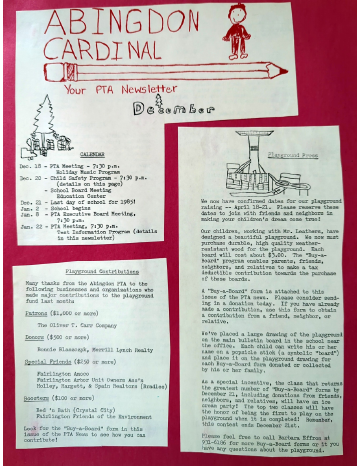 ABINGDON
CARDINAL
Your PTA Newsletter
December
CALENDAR
Dec. 18 - PTA Meeting - 7:30 p.m.
Holiday Music Program
Dec. 20 - Child Safety Program - 7:30 p.m.
(details on this page)
- School Board Meeting
Education Center
Dec. 21 - Last day of school for 1983!
Jan. 2 - School begins
Jan. 8 - PTA Executive Board Meeting,
7:30 p.m.
Jan. 22 - PTA Meeting, 7:30 p.m.
Test Information Program (details
in this newsletter)
Playground Contributions
Many thanks from the Abingdon PTA to the
following businesses and organizations who
made major contributions to the playground
fund last month:
Patrons ($1,000 or more)
The Oliver T. Carr Company
Donors ($500 or more)
Bonnie Singer, Merrill Lynch Realty
Special Friends ($250 or more)
Fairlington Amoco
Fairlington Arbor Unit Owners Ass'n
Boosters ($100 or more)
Red 'n Rait (Crystal City)
Fairlington Friends of the Environment
Look for the "Buy-a-Board" form in this
issue of the PTA News to see how you can
contribute!
Playground Power
We now have confirmed dates for our playground
raising -- April 18-21. Please reserve these
dates to join with friends and neighbors in
making your children's dream come true!
Our children, working with Mr. Leathers, have
designed a beautiful playground. We now must
purchase durable, high quality weather-
resistant wood for the playground. Each
board will cost about $3.00. The "Buy-a-
Board" program enables parents, friends,
neighbors, and relatives to make a tax
deductible contribution towards the purchase
of these boards.
A "Buy-a-Board" form is attached to this
issue of the PTA news. Please consider send-
ing in a donation today. If you have already
made a contribution, use this form to obtain
a contribution from a friend, neighbor, or
relative.
We've placed a large drawing of the playground
on the main bulletin board in the school near
the office. Each child can write his or her
name on a popsicle stick (a symbolic "board")
and place it on the playground drawing for
each Buy-a-Board form donated or collected
by his or her family.
As a special incentive, the class that returns
the greatest number of "Buy-a-Board" forms by
December 21, including donations from friends,
neighbors, and relatives, will have an ice
cream party! The top two classes will have
the honor of being the first to play on the
playground when it is completed! Remember,
this contest ends December 21st.
Please feel free to call Barbara Effron at
if you want more Buy-a-Board forms or if you
have any questions about the playground.